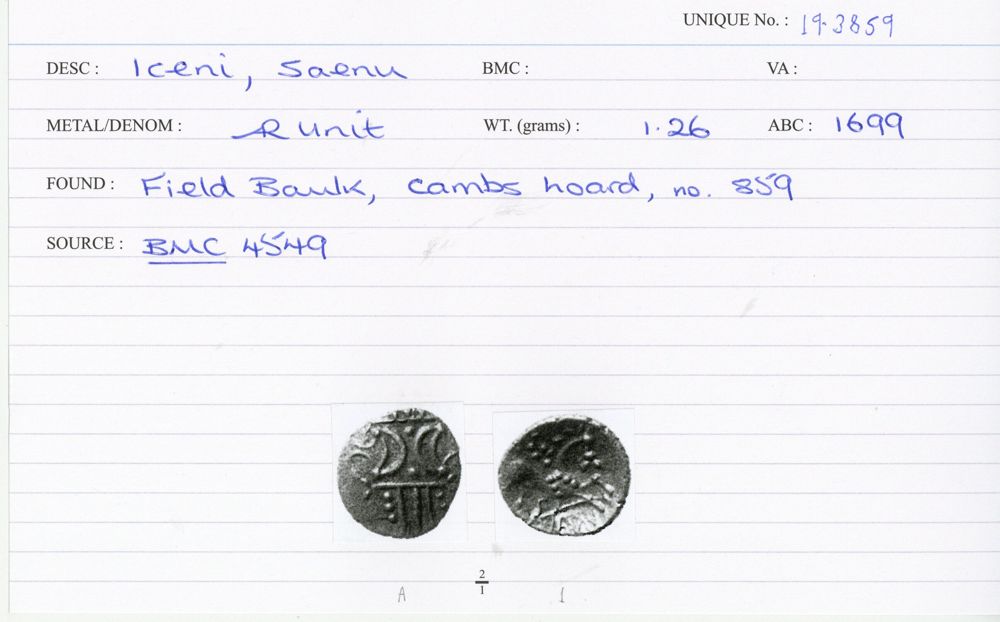 UNIQUE No. : 19.3859
DESC : Iceni, Saenu BMC : VA :
METAL/DENOM : AR unit WT. (grams) : 1.26 ABC : 1699
FOUND : Field Baulk, Cambs hoard, no. 859
SOURCE : BMC 4549
2
A 1 1